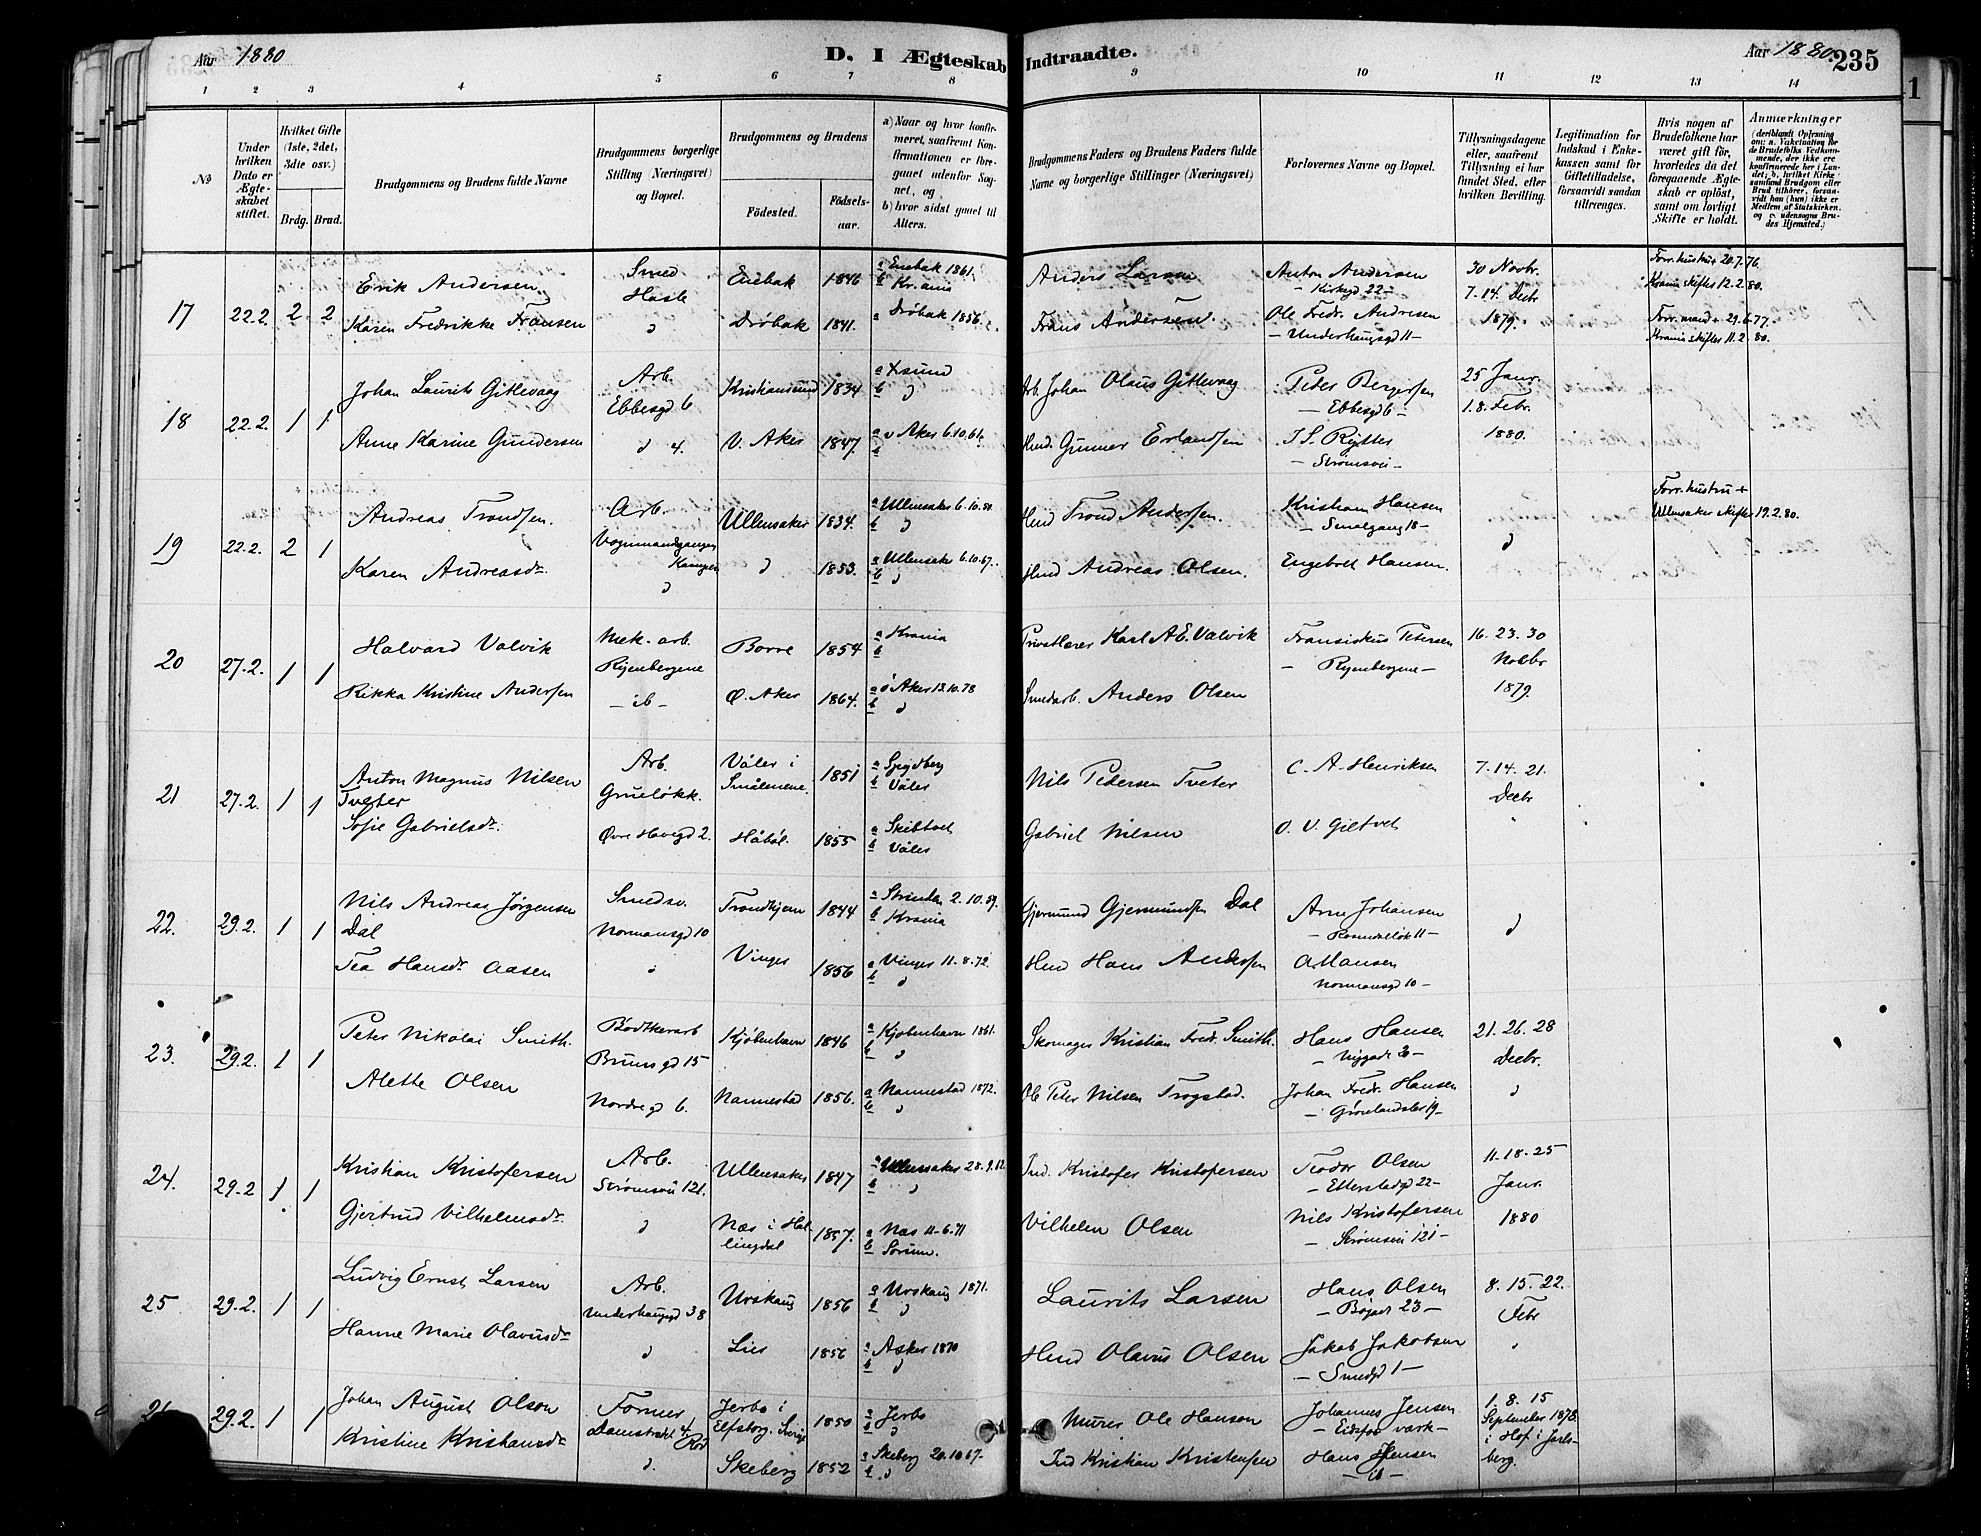 Aar 1880
D. I Ægteskab Indtraadte.
Aar 1880.
235
1 2 3 4 5 6 7 8 9 10 11 12 13 14
№
Under hvilken Dato er Ægteskabet stiftet.
Hvilket Gifte (1ste, 2det, 3die osv.)
Brdg. Brud.
Brudgommens og Brudens fulde Navne
Brudgommens borgerlige Stilling (Næringsvei) og Bopæl.
Brudgommens og Brudens
Fødested.
Fødselsaar.
a) Naar og hvor konfirmeret, saafremt Konfirmationen er foregaaet udenfor Sognet, og,
b) hvor sidst gaaet til Alters.
Brudgommens Faders og Brudens Faders fulde Navne og borgerlige Stillinger (Næringsvei)
Forlovernes Navne og Bopæl.
Tillysningsdagene eller, saafremt Tillysning ei har fundet Sted, efter hvilken Bevilling.
Legitimation for Indskud i Enkekassen samt for Giftetilladelse, forsaavidt saadan tiltrænges.
Hvis nogen af Brudefolkene har været gift før, hvorledes da det foregaaende Ægteskab er opløst, samt om lovligt Skifte er holdt.
Anmærkninger (deriblandt Oplysning om: a. Vaccination for de Brudefolks Vedkommende, der ikke ere konfirmerede her i Landet; b. hvilket Kirkesamfund Brudgom eller Brud tilhører, forsaavidt han (hun) ikke er Medlem af Statskirken, og c. udensogns Brudes Hjemsted.)
17 22.2. 2 2
Erik Andersen Smed Hasle Enebak 1846 a Enebak 1861. b Kr.ania
Anders Larsen Anton Andersen - Kirkegd 22 - 30 Novbr. 7. 14. Decbr 1879.
Forr. hustru + 20.7.76. Krania skifter 12.2.80.
Karen Fredrikke Fransen Drøbak 1841. a Drøbak 1856
Frans Andersen. Ole Fredr. Andresen - Underhaugsgd 11 -
Forr. mand + 29.6.77. Krania skifter 11.2.80.
18 22.2. 1 1
Johan Laurits Gitlevaag Arb. Ebbesgd 6 Kristiansund 1834 a Xsund b "
Arb. Johan Olaus Gitlevaag Peder Bergersen - Ebbesgd 6 - 25 Janr. 1. 8. Febr. 1880.
Anne Karine Gundersen " 4. V. Aker 1847. a V Aker 6.10.61. b
Husd. Gunner Erlandsen I S. Rytter - Strømsvei -
19 22.2. 2 1
Andreas Trondsen. Arb. Ullensaker 1834. a Ullensaker 6.10.50. b "
Husd Trond Andersen. Kristian Hansen - Smalgang 18 - "
Forr. hustru + Ullensaker skifte 19.2.80.
Karen Andreasdr " 1853. a Ullensaker 6.10.67. b "
Husd Andreas Olsen. Engebret Hansen.
20 27.2. 1 1
Halvard Valvik Mek. arb. Ryenbergene Borre 1854 a Krania b
Privatlærer Karl A. E. Valvik Fransiskus Petersen - Ryenbergene - 16. 23. 30 Novbr 1879.
Rikka Kristine Andersen - ib - Ø. Aker 1864. a Ø Aker 13.10.78 b "
Smedarb. Anders Olsen
21 27.2. 1 1
Anton Magnus Nilsen Tveter Arb. Grueløkk. Våler i Smålenene. 1851 a Spydberg b Våler
Nils Pedersen Tveter C. A. Henriksen 7. 14. 21. Decbr
Sofie Gabrielsdr. Øvre Havegd 2. Håbøl. 1855 a Skibtvet b Våler
Gabriel Nilsen O. V. Giltvet "
22. 29.2. 1 1
Nils Andreas Jørgensen Dal Smedsv. Normansgd 10 Trondhjem 1844 a Strinden 2.10.59. b Krania
Gjermund Gjermundsen Dal Arne Johansen - Rosendalløk 11 - "
Tea Hansdr Aasen " Vinger 1856 a Vinger 11.8.72. b "
Husd Hans Andersen A. Hansen Normansgd 10 -
23. 29.2. 1 1
Peter Nikolai Smith. Bødtkerarb Brunsgd 15 Kjøbenhavn 1846 a Kjøbenhavn 1861. b "
Skomager Kristian Fredr. Smith. Hans Hansen - Nygade 3 - 21. 26. 28 Decbr.
Alette Olsen Nordregd 6. Nannestad 1856. a Nannestad 1872. b "
Ole Peter Nilsen Trogstad. Johan Fredr. Hansen - Grønlandsler 19 - "
24. 29.2 1 1
Kristian Kristofersen Arb. Strømsvei 121. Ullensaker 1847 a Ullensaker 28.9.62 b "
Ind. Kristofer Kristofersen Teodor Olsen - Etterstadgd 22 - 11. 18. 25 Janr. 1880
Gjertrud Vilhelmsdr. " Næs i Hallingdal 1857. a Næs 11.6.71 b Sørum.
Vilhelm Olsen Nils Kristofersen - Strømsvei 121 -
25 29.2. 1 1
Ludvig Ernst Larsen Arb. Underhaugsgd 38 Urskaug 1856 a Urskaug 1871. b "
Laurits Larsen Hans Olsen - Bøgade 23 - 8. 15. 22. Febr
Hanne Marie Olavusdr " Lier 1856 a Asker 1870 b "
Husd Olavus Olsen Jakob Jakobsen - Smedgd 1 - "
29.2. 1 1
Johan August Olson Former Damstrædet 4. Jerbo i Elfsborg. Sverige 1850 a Jerbo b "
Murer Ole Hanson Johannes Jensen - Eidsfos værk - 1. 8. 15 September 1878. i Hof i Jarlsberg.
Kristine Kristiansdr " Skeberg 1852 a Skeberg 20.10.67. b "
Ind Kristian Kristensen Hans Jensen - ib -